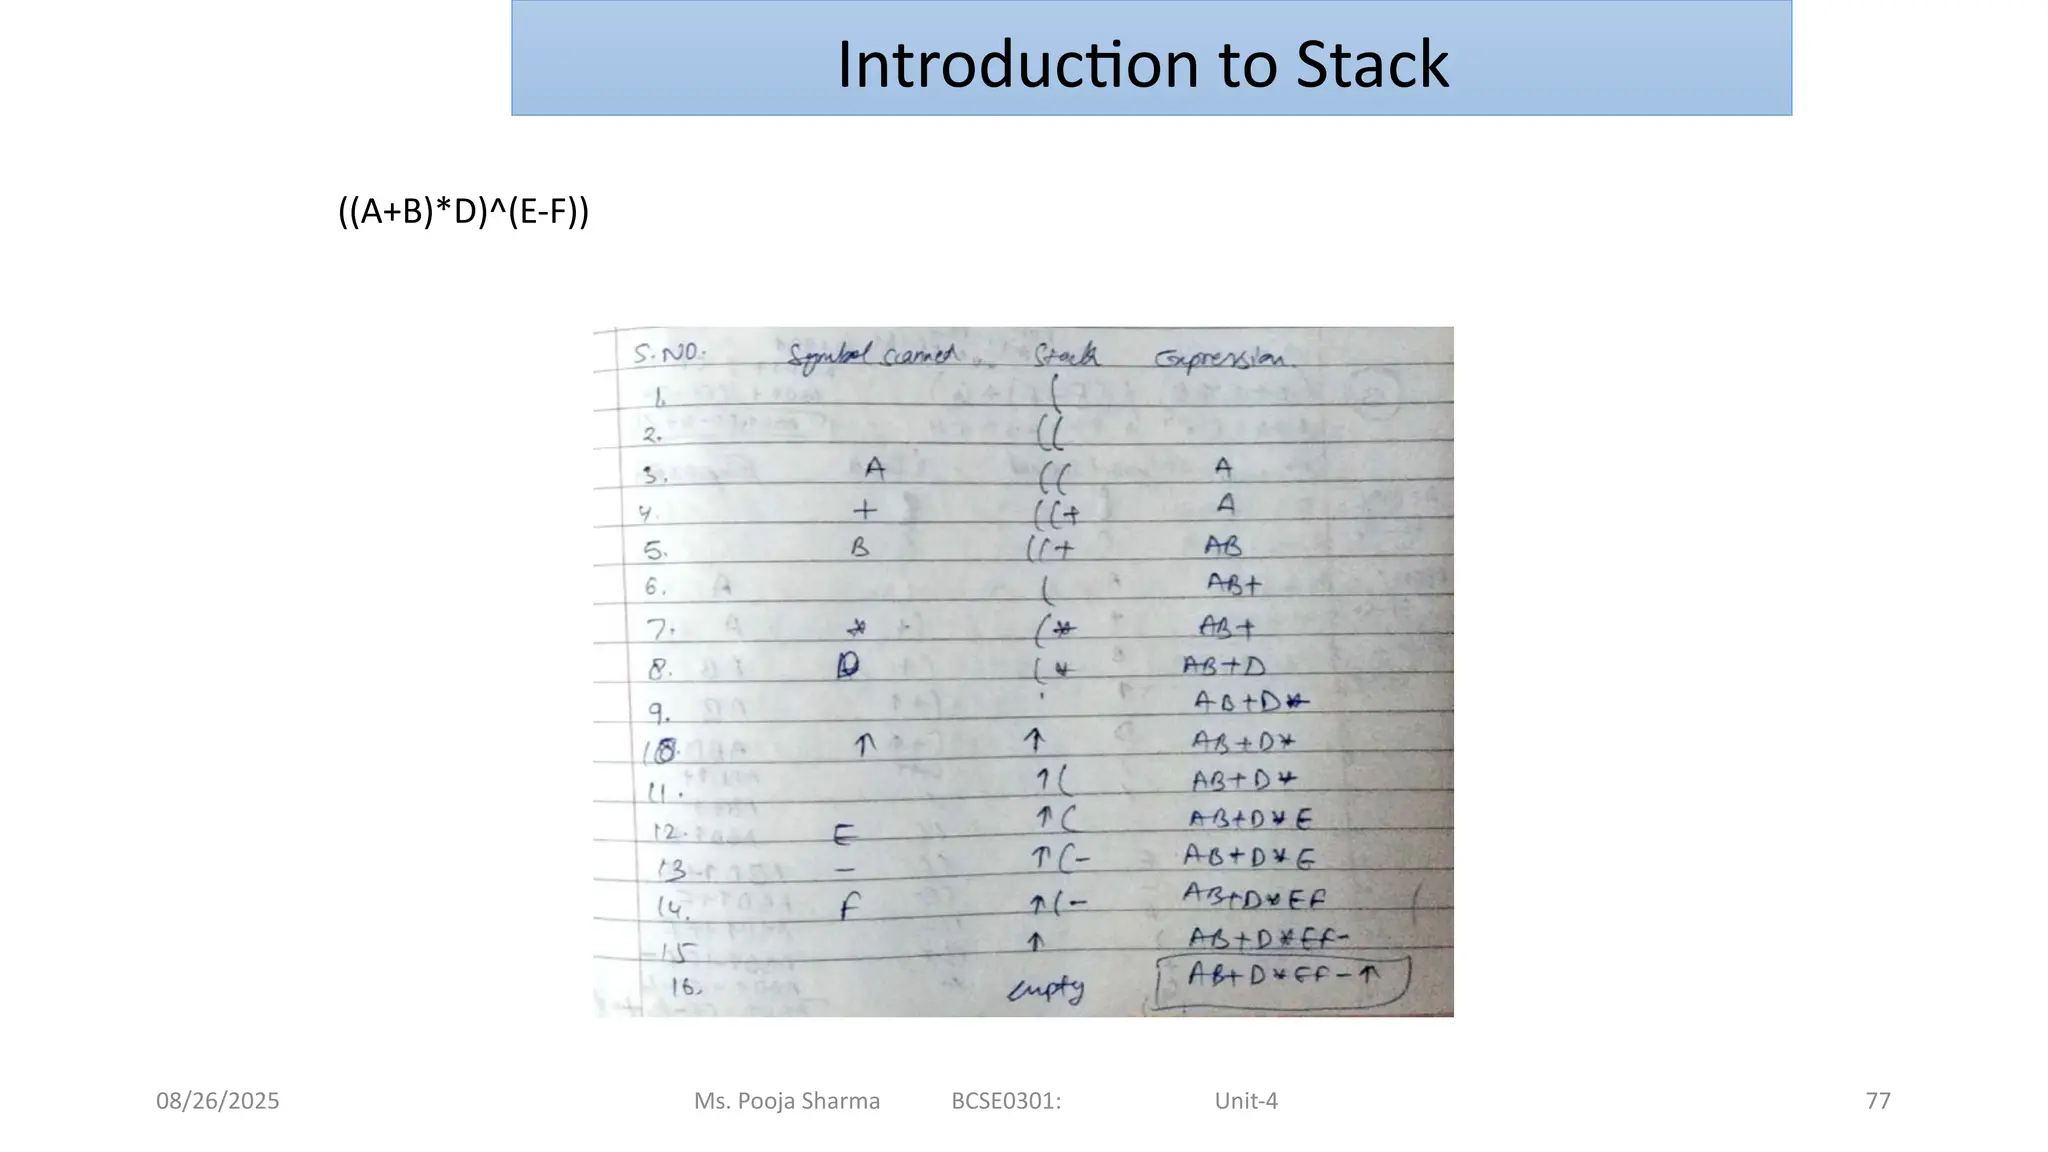 Introduction to Stack
((A+B)*D)^(E-F))
S.NO. Symbol scanned Stack Expression.
1. (
2. ((
3. A (( A
4. + ((+ A
5. B ((+ AB
6. ( AB+
7. * (* AB+
8. D (* AB+D
9. AB+D*
10. ↑ ↑ AB+D*
11. ↑( AB+D*
12. E ↑( AB+D*E
13 - ↑(- AB+D*E
14. F ↑(- AB+D*EF
15 ↑ AB+D*EF-
16. empty AB+D*EF-↑
08/26/2025 Ms. Pooja Sharma BCSE0301: Unit-4 77